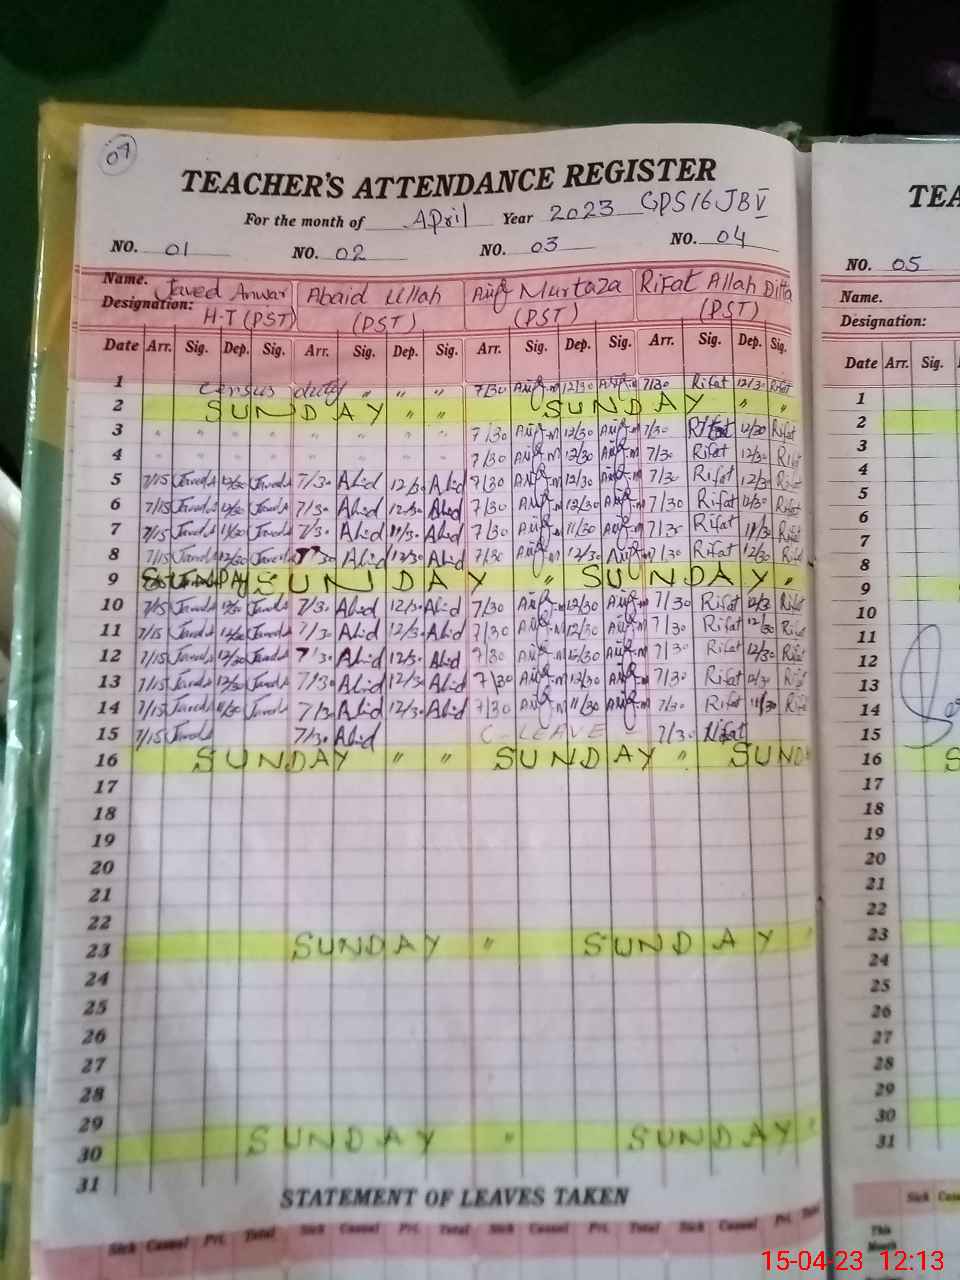 07
TEACHER'S ATTENDANCE REGISTER
For the month of April Year 2023 GPS 16 JB V
NO. 01 NO. 02 NO. 03 NO. 04
Name. Javed Anwar Abaid Ullah Murtaza Rifat Allah Ditta
Designation: H-T (PST) (PST) (PST) (PST)
Date Arr. Sig. Dep. Sig. Arr. Sig. Dep. Sig. Arr. Sig. Dep. Sig. Arr. Sig. Dep. Sig.
1 Census duty " " " 7/30 12/30 7/30 Rifat 12/30 Rifat
2 SUNDAY " " SUNDAY " "
3 " " " " " " " " 7/30 12/30 7/30 Rifat 12/30 Rifat
4 " " " " " " " " 7/30 12/30 7/30 Rifat 12/30
5 7/15 12/30 7/30 Abid 12/30 Abid 7/30 12/30 7/30 Rifat 12/30
6 7/15 12/30 7/30 Abid 12/30 Abid 7/30 12/30 7/30 Rifat 12/30
7 7/15 11/30 7/30 Abid 11/30 Abid 7/30 11/30 7/30 Rifat 11/30
8 7/15 12/30 7/30 Abid 12/30 Abid 7/30 12/30 7/30 Rifat 12/30
9 SUNDAY SUNDAY " SUNDAY "
10 7/15 12/30 7/30 Abid 12/30 Abid 7/30 12/30 7/30 Rifat 12/30
11 7/15 12/30 7/30 Abid 12/30 Abid 7/30 12/30 7/30 Rifat 12/30
12 7/15 12/30 7/30 Abid 12/30 Abid 7/30 12/30 7/30 Rifat 12/30
13 7/15 12/30 7/30 Abid 12/30 Abid 7/30 12/30 7/30 Rifat 12/30
14 7/15 11/30 7/30 Abid 12/30 Abid 7/30 11/30 7/30 Rifat 11/30
15 7/15 7/30 Abid C-LEAVE 7/30 Rifat
16 SUNDAY " " SUNDAY " SUND
17
18
19
20
21
22
23 SUNDAY " SUNDAY "
24
25
26
27
28
29
30 SUNDAY " SUNDAY "
31
STATEMENT OF LEAVES TAKEN
Sick Casual Pri. Total Sick Casual Pri. Total Sick Casual Pri. Total Sick Casual Pri. Total
TEA
NO. 05
Name.
Designation:
Date Arr. Sig.
1
2
3
4
5
6
7
8
9
10
11
12
13
14
15
16 S
17
18
19
20
21
22
23
24
25
26
27
28
29
30
31
Sick
This
Month
15-04-23 12:13